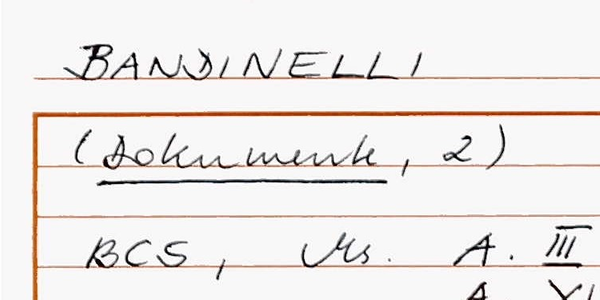 BANDINELLI
(Dokumente, 2)
BCS, Ms. A. III
A. VI